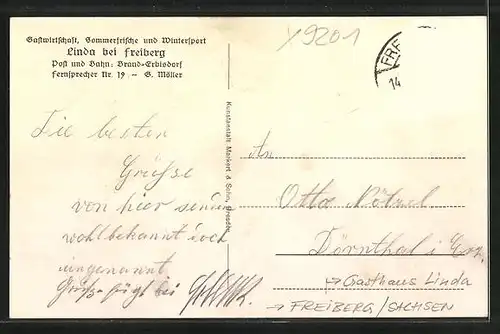 Gastwirtschaft, Sommerfrische und Wintersport
Linda bei Freiberg
Post und Bahn: Brand-Erbisdorf
Fernsprecher Nr. 19 – G. Möller
Die besten
Grüsse
von hier
wohlbekannt
ungenannt
bei
Kunstanstalt Markert & Sohn, Dresden
X9201
FRE
14
An
Otto Nötzel
Dörnthal i. Erz.
→ Gasthaus Linda
→ FREIBERG/SACHSEN